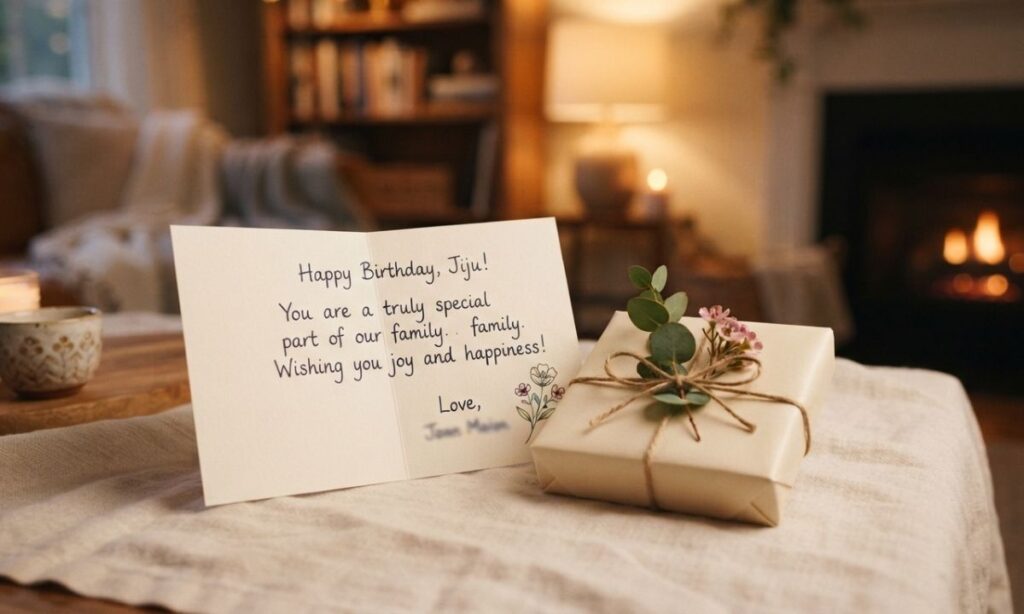 Happy Birthday, Jiju!
You are a truly special
part of our family. . family.
Wishing you joy and happiness!
Love,